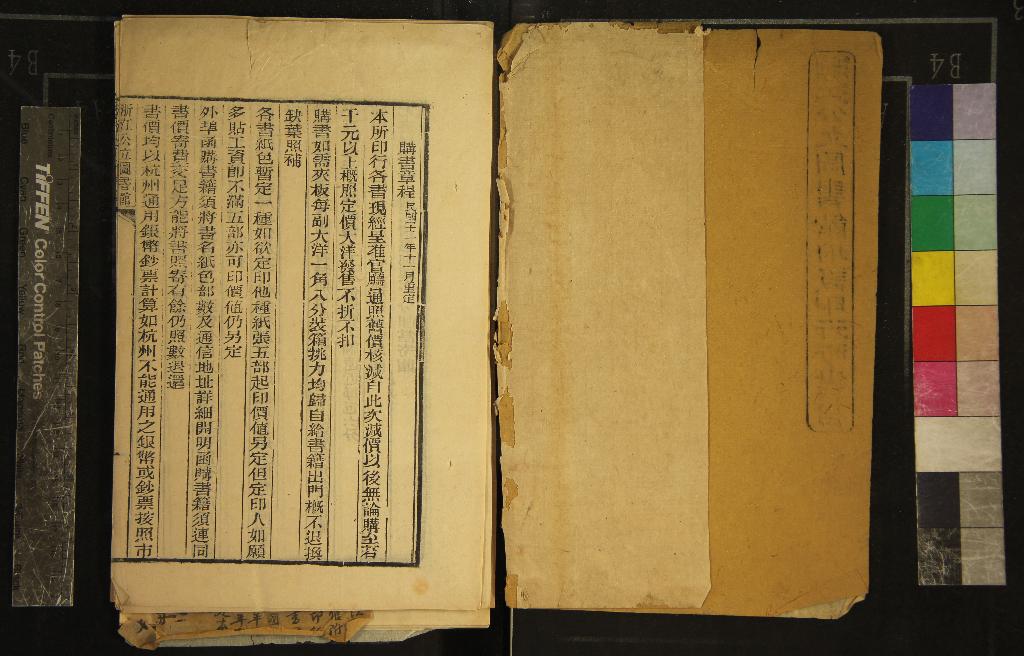 購書章程民國二十一年十一月重定
本所印行各書現經呈准官廳通照舊價核減自此次減價以後無論購至若
干元以上概照定價大洋發售不折不扣
購書如需夾板每副大洋一角八分裝箱挑力均歸自給書籍出門概不退換
缺葉照補
各書紙色暫定一種如欲定印他種紙張五部起印價値另定但定印人如願
多貼工資卽不滿五部亦可印價値仍另定
外埠函購書籍須將書名紙色部數及通信地址詳細開明函購書籍須連同
書價寄費交足方能將書照寄有餘仍照數退還
書價均以杭州通用銀幣鈔票計算如杭州不能通用之銀幣或鈔票按照市
浙江公立圖書館
TIFFEN Color Control Patches
B4
B4